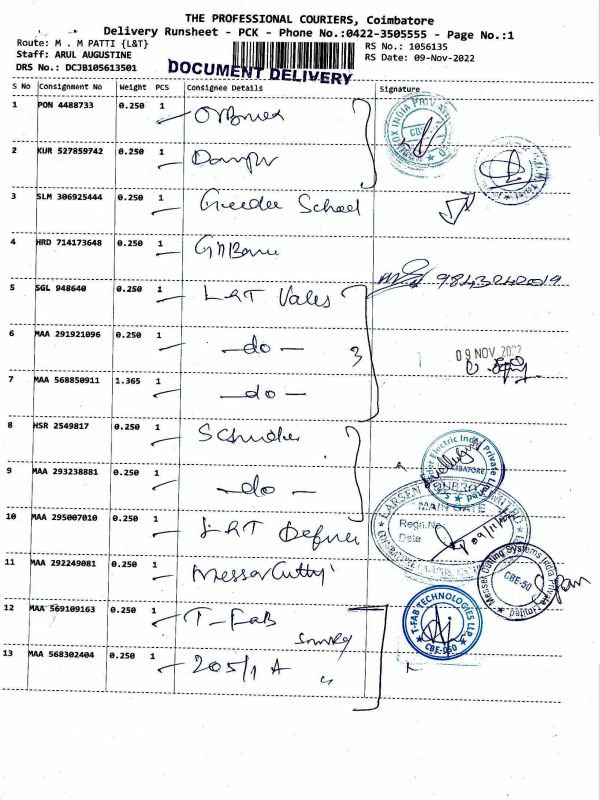 THE PROFESSIONAL COURIERS, Coimbatore
Delivery Runsheet - PCK - Phone No.:0422-3505555 - Page No.:1
Route: M . M PATTI {L&T}
RS No.: 1056135
Staff: ARUL AUGUSTINE
RS Date: 09-Nov-2022
DRS No.: DCJB105613501
DOCUMENT DELIVERY
S No Consignment No Weight PCS Consignee Details Signature
1 PON 4488733 0.250 1
2 KUR 527859742 0.250 1
3 SLM 306925444 0.250 1 School
4 HRD 714173648 0.250 1
9843242019
5 SGL 948640 0.250 1 L&T Vales
6 MAA 291921096 0.250 1 -do- 3
09 NOV 2022
7 MAA 568850911 1.365 1 -do-
8 HSR 2549817 0.250 1
9 MAA 293238881 0.250 1 -do-
MAIN GATE
Regn.No
Date 09/11/22
10 MAA 295007010 0.250 1 L&T
11 MAA 292249081 0.250 1 Messer
Messer Cutting Systems India Private Limited
CBE-50
12 MAA 569109163 0.250 1 T-Fab
T-FAB TECHNOLOGIES LLP
CBE-050
13 MAA 568302404 0.250 1 205/1 A